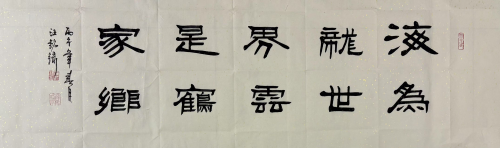 海為
龍世
界雲
是鶴
家鄉
丙午年春月
汪毅鏽